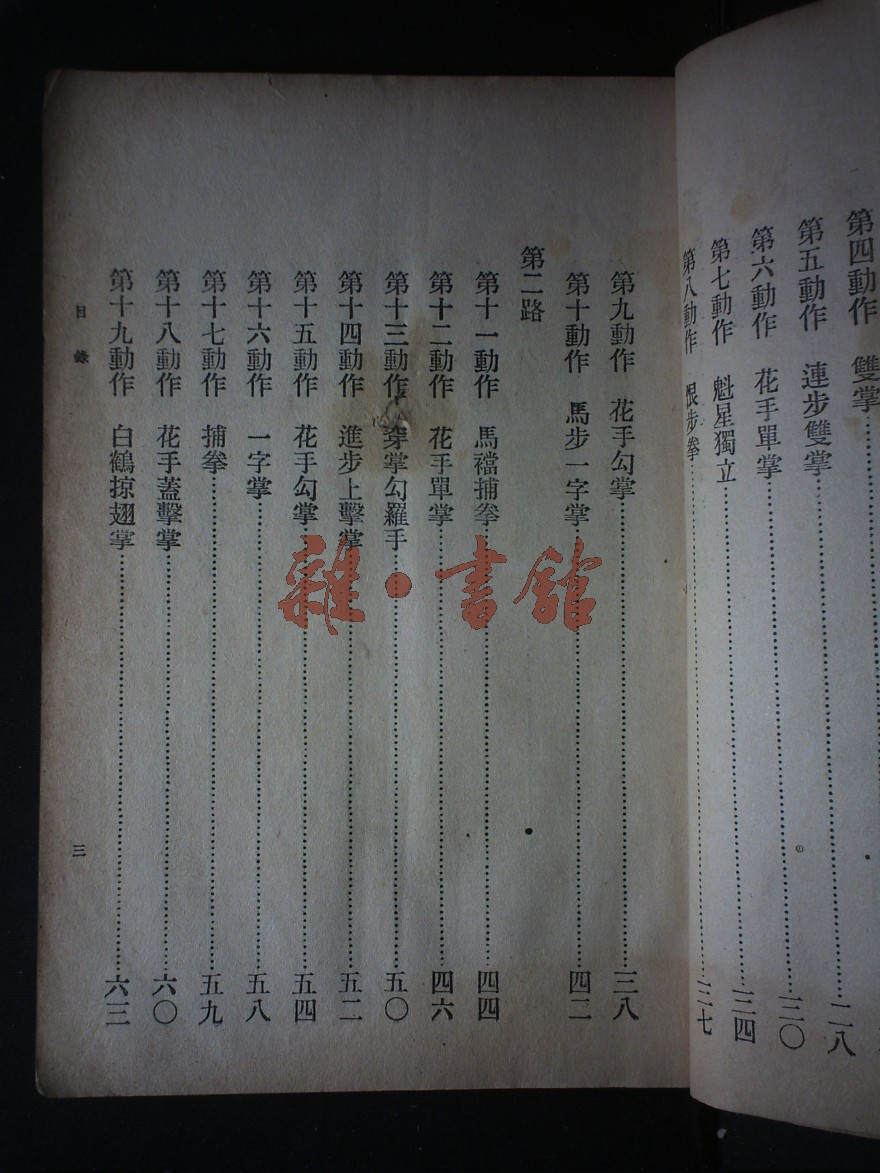 第四動作　雙掌
第五動作　連步雙掌……二八
第六動作　花手單掌……三〇
第七動作　魁星獨立……三四
第八動作　恨步拳……三七
第九動作　花手勾掌……三八
第十動作　馬步一字掌……四二
第二路
第十一動作　馬襠捕拳……四四
第十二動作　花手單掌……四六
第十三動作　穿掌勾羅手……五〇
第十四動作　進步上擊掌……五二
第十五動作　花手勾掌……五四
第十六動作　一字掌……五八
第十七動作　捕拳……五九
第十八動作　花手蓋擊掌……六〇
第十九動作　白鶴掠翅掌……六三
目錄
三
雜·書館